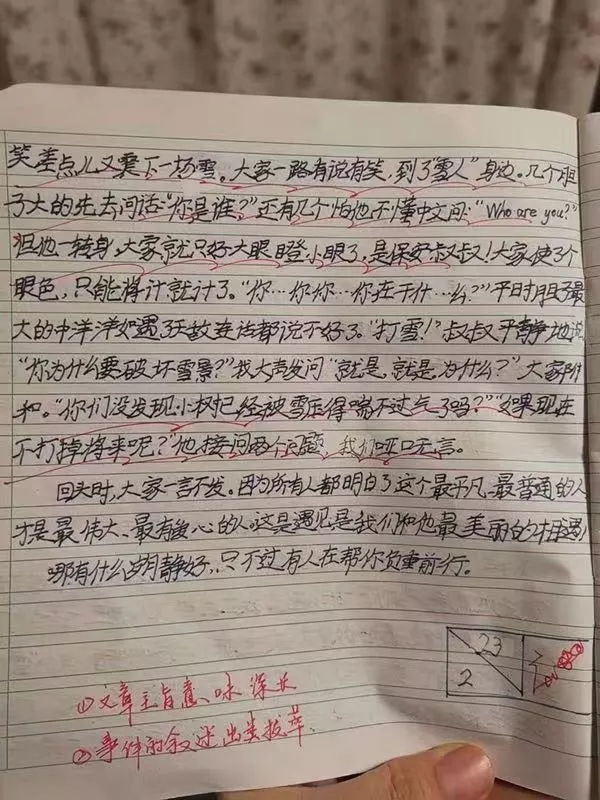 笑差点儿又震下一场雪。大家一路有说有笑,到了“雪人”身边。几个胆
子大的先去问话:“你是谁?”还有几个怕他不懂中文问:“Who are you?”
但他一转身,大家就只好大眼瞪小眼了,是保安叔叔!大家使了个
眼色,只能将计就计了。“你…你你…你在干什…么?”平时胆子最
大的牛洋洋如遇了天敌连话都说不好了。“打雪!”叔叔平静地说
“你为什么要破坏雪景?”我大声发问“就是,就是,为什么?”大家附
和。“你们没发现小树已经被雪压得喘不过气了吗?”“如果现在
不打掉将来呢?”他接问两个问题,我们哑口无言。
回头时,大家一言不发。因为所有人都明白了这个最平凡、最普通的人
才是最伟大、最有爱心的人。这是遇见是我们和他最美丽的相遇!
哪有什么岁月静好,只不过有人在帮你负重前行。
23
2
①文章主旨意味深长
②事件的叙述出类拔萃.